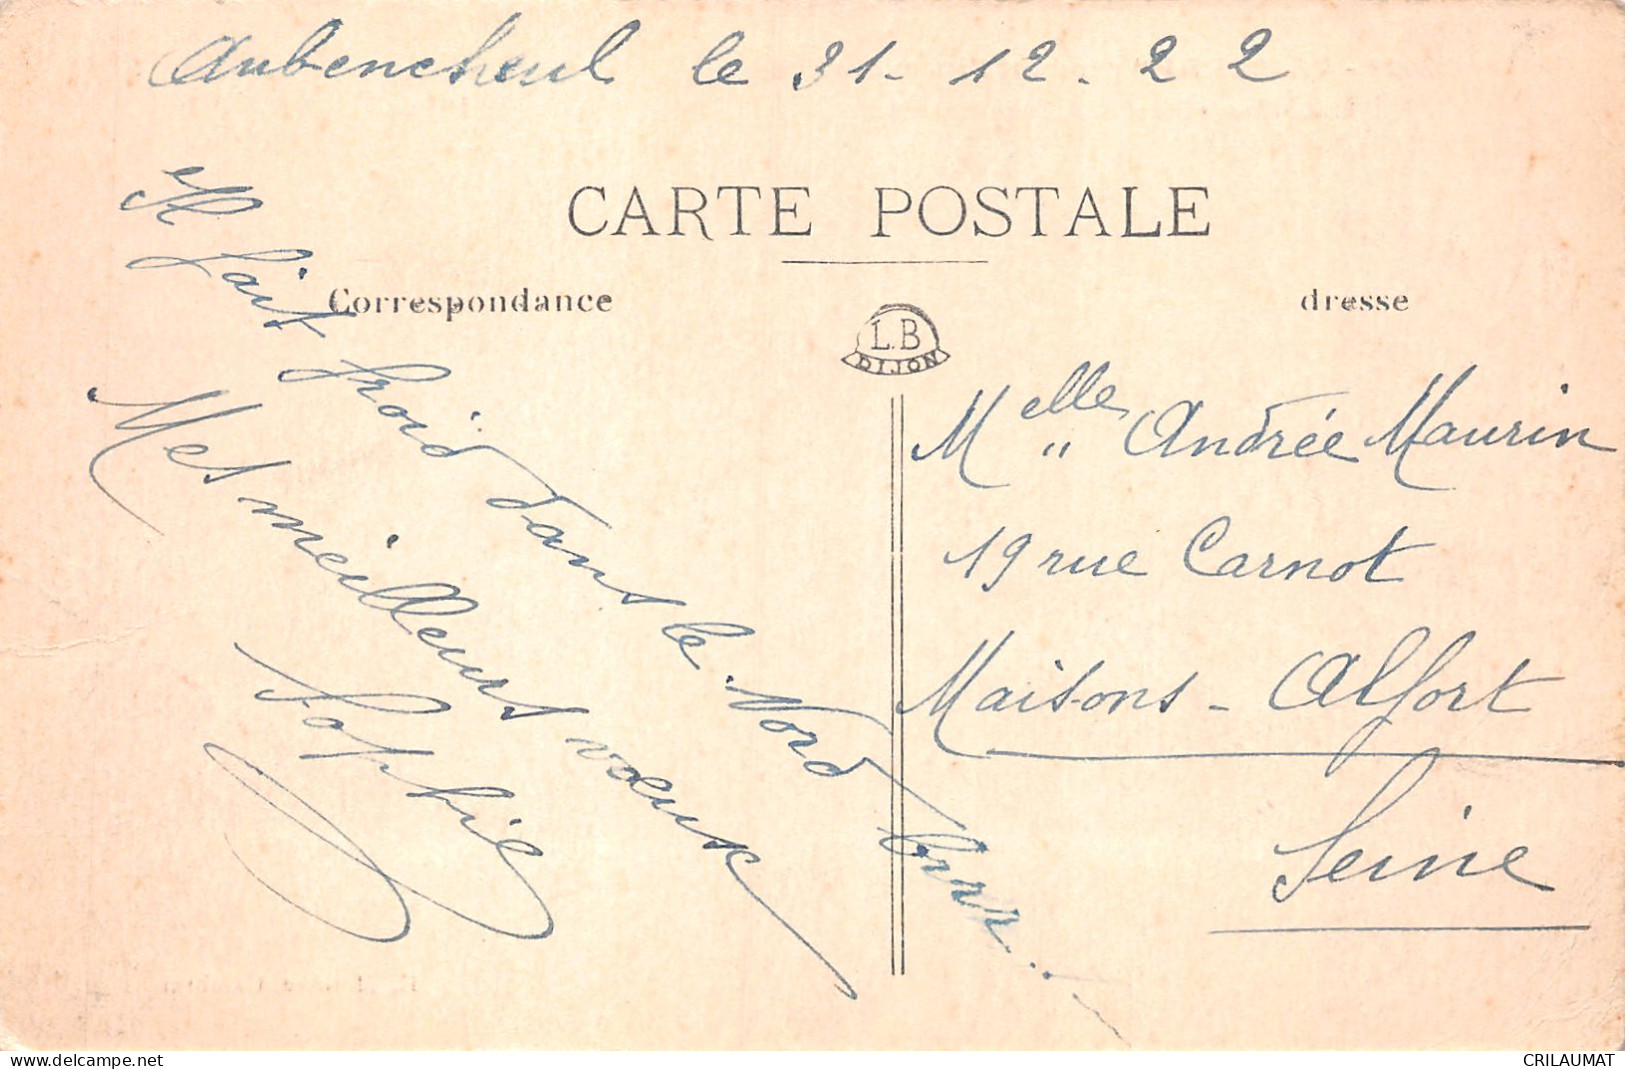 Aubencheul le 31-12-22
CARTE POSTALE
Correspondance
dresse
L.B
DIJON
Il fait froid dans le Nord brrr...
Mes meilleurs vœux
Sophie
Melle Andrée Maurin
19 rue Carnot
Maisons-Alfort
Seine
https://www.delcampe.net
CRILAUMAT